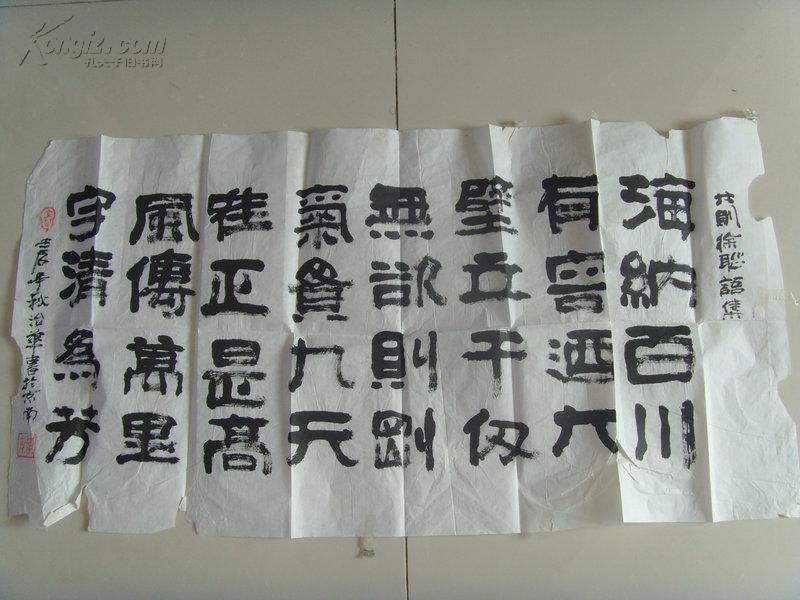 林則徐聯語集
海納百川
有容迺大
壁立千仞
無欲則剛
氣貫九天
正是高
風傳萬里
守清為芳
壬辰年秋治華書於京南
Kongfz.com
孔夫子旧书网